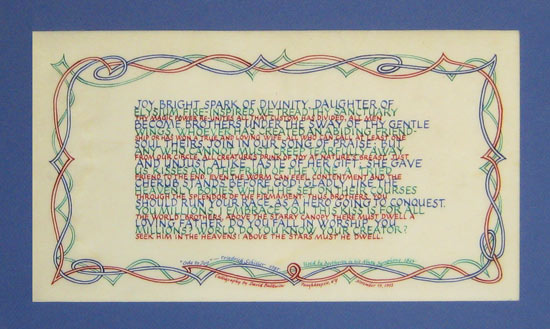 JOY, BRIGHT SPARK OF DIVINITY, DAUGHTER OF
ELYSIUM, FIRE-INSPIRED WE TREAD THY SANCTUARY.
THY MAGIC POWER RE-UNITES ALL THAT CUSTOM HAS DIVIDED, ALL MEN
BECOME BROTHERS UNDER THE SWAY OF THY GENTLE
WINGS. WHOEVER HAS CREATED AN ABIDING FRIEND-
SHIP OR HAS WON A TRUE AND LOVING WIFE, ALL WHO CAN CALL AT LEAST ONE
SOUL THEIRS, JOIN IN OUR SONG OF PRAISE; BUT
ANY WHO CANNOT MUST CREEP TEARFULLY AWAY
FROM OUR CIRCLE. ALL CREATURES DRINK OF JOY AT NATURE'S BREAST. JUST
AND UNJUST ALIKE TASTE OF HER GIFT; SHE GAVE
US KISSES AND THE FRUIT OF THE VINE, A TRIED
FRIEND TO THE END. EVEN THE WORM CAN FEEL CONTENTMENT AND THE
CHERUB STANDS BEFORE GOD! GLADLY, LIKE THE
HEAVENLY BODIES WHICH HE SET ON THEIR COURSES
THROUGH THE SPLENDOR OF THE FIRMAMENT; THUS, BROTHERS, YOU
SHOULD RUN YOUR RACE, AS A HERO GOING TO CONQUEST.
YOU MILLIONS, I EMBRACE YOU. THIS KISS IS FOR ALL
THE WORLD! BROTHERS, ABOVE THE STARRY CANOPY THERE MUST DWELL A
LOVING FATHER. DO YOU FALL IN WORSHIP, YOU
MILLIONS? WORLD, DO YOU KNOW YOUR CREATOR?
SEEK HIM IN THE HEAVENS! ABOVE THE STARS MUST HE DWELL.
"Ode to Joy" Friedrich Schiller Used by Beethoven in his Ninth Symphony
Calligraphy by David Poughkeepsie, NY November